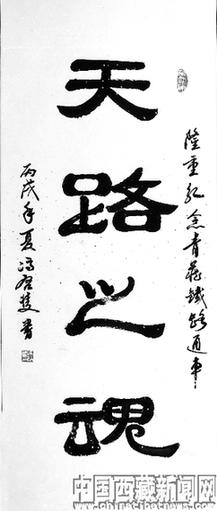 隆重纪念青藏铁路通车
天路之魂
丙戌年夏冯存双书
中国西藏新闻网
www.chinatibetnews.com